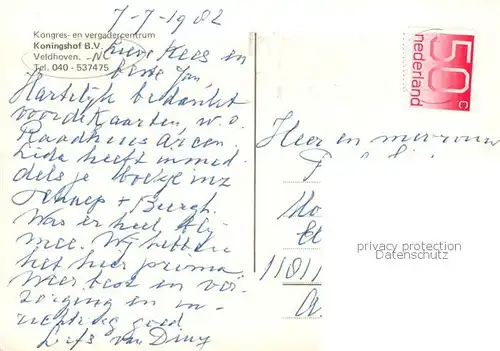 7-7-1982
Kongres- en vergadercentrum
Koningshof B.V.
Veldhoven. NL
Tel. 040 - 537475
lieve Kees en
beste Jan,
Hartelijk bedankt
voor de Kaarten, w.o.
Raadhuis
Lida heeft inmid-
dels je
+ Burgh.
Was er heel blij
mee. Wij hebben
het hier prima
weer best en ver-
zorging en in-
richting goed
Liefs van Diny
50c
nederland
Heer en mevrouw
1101
privacy protection
Datenschutz